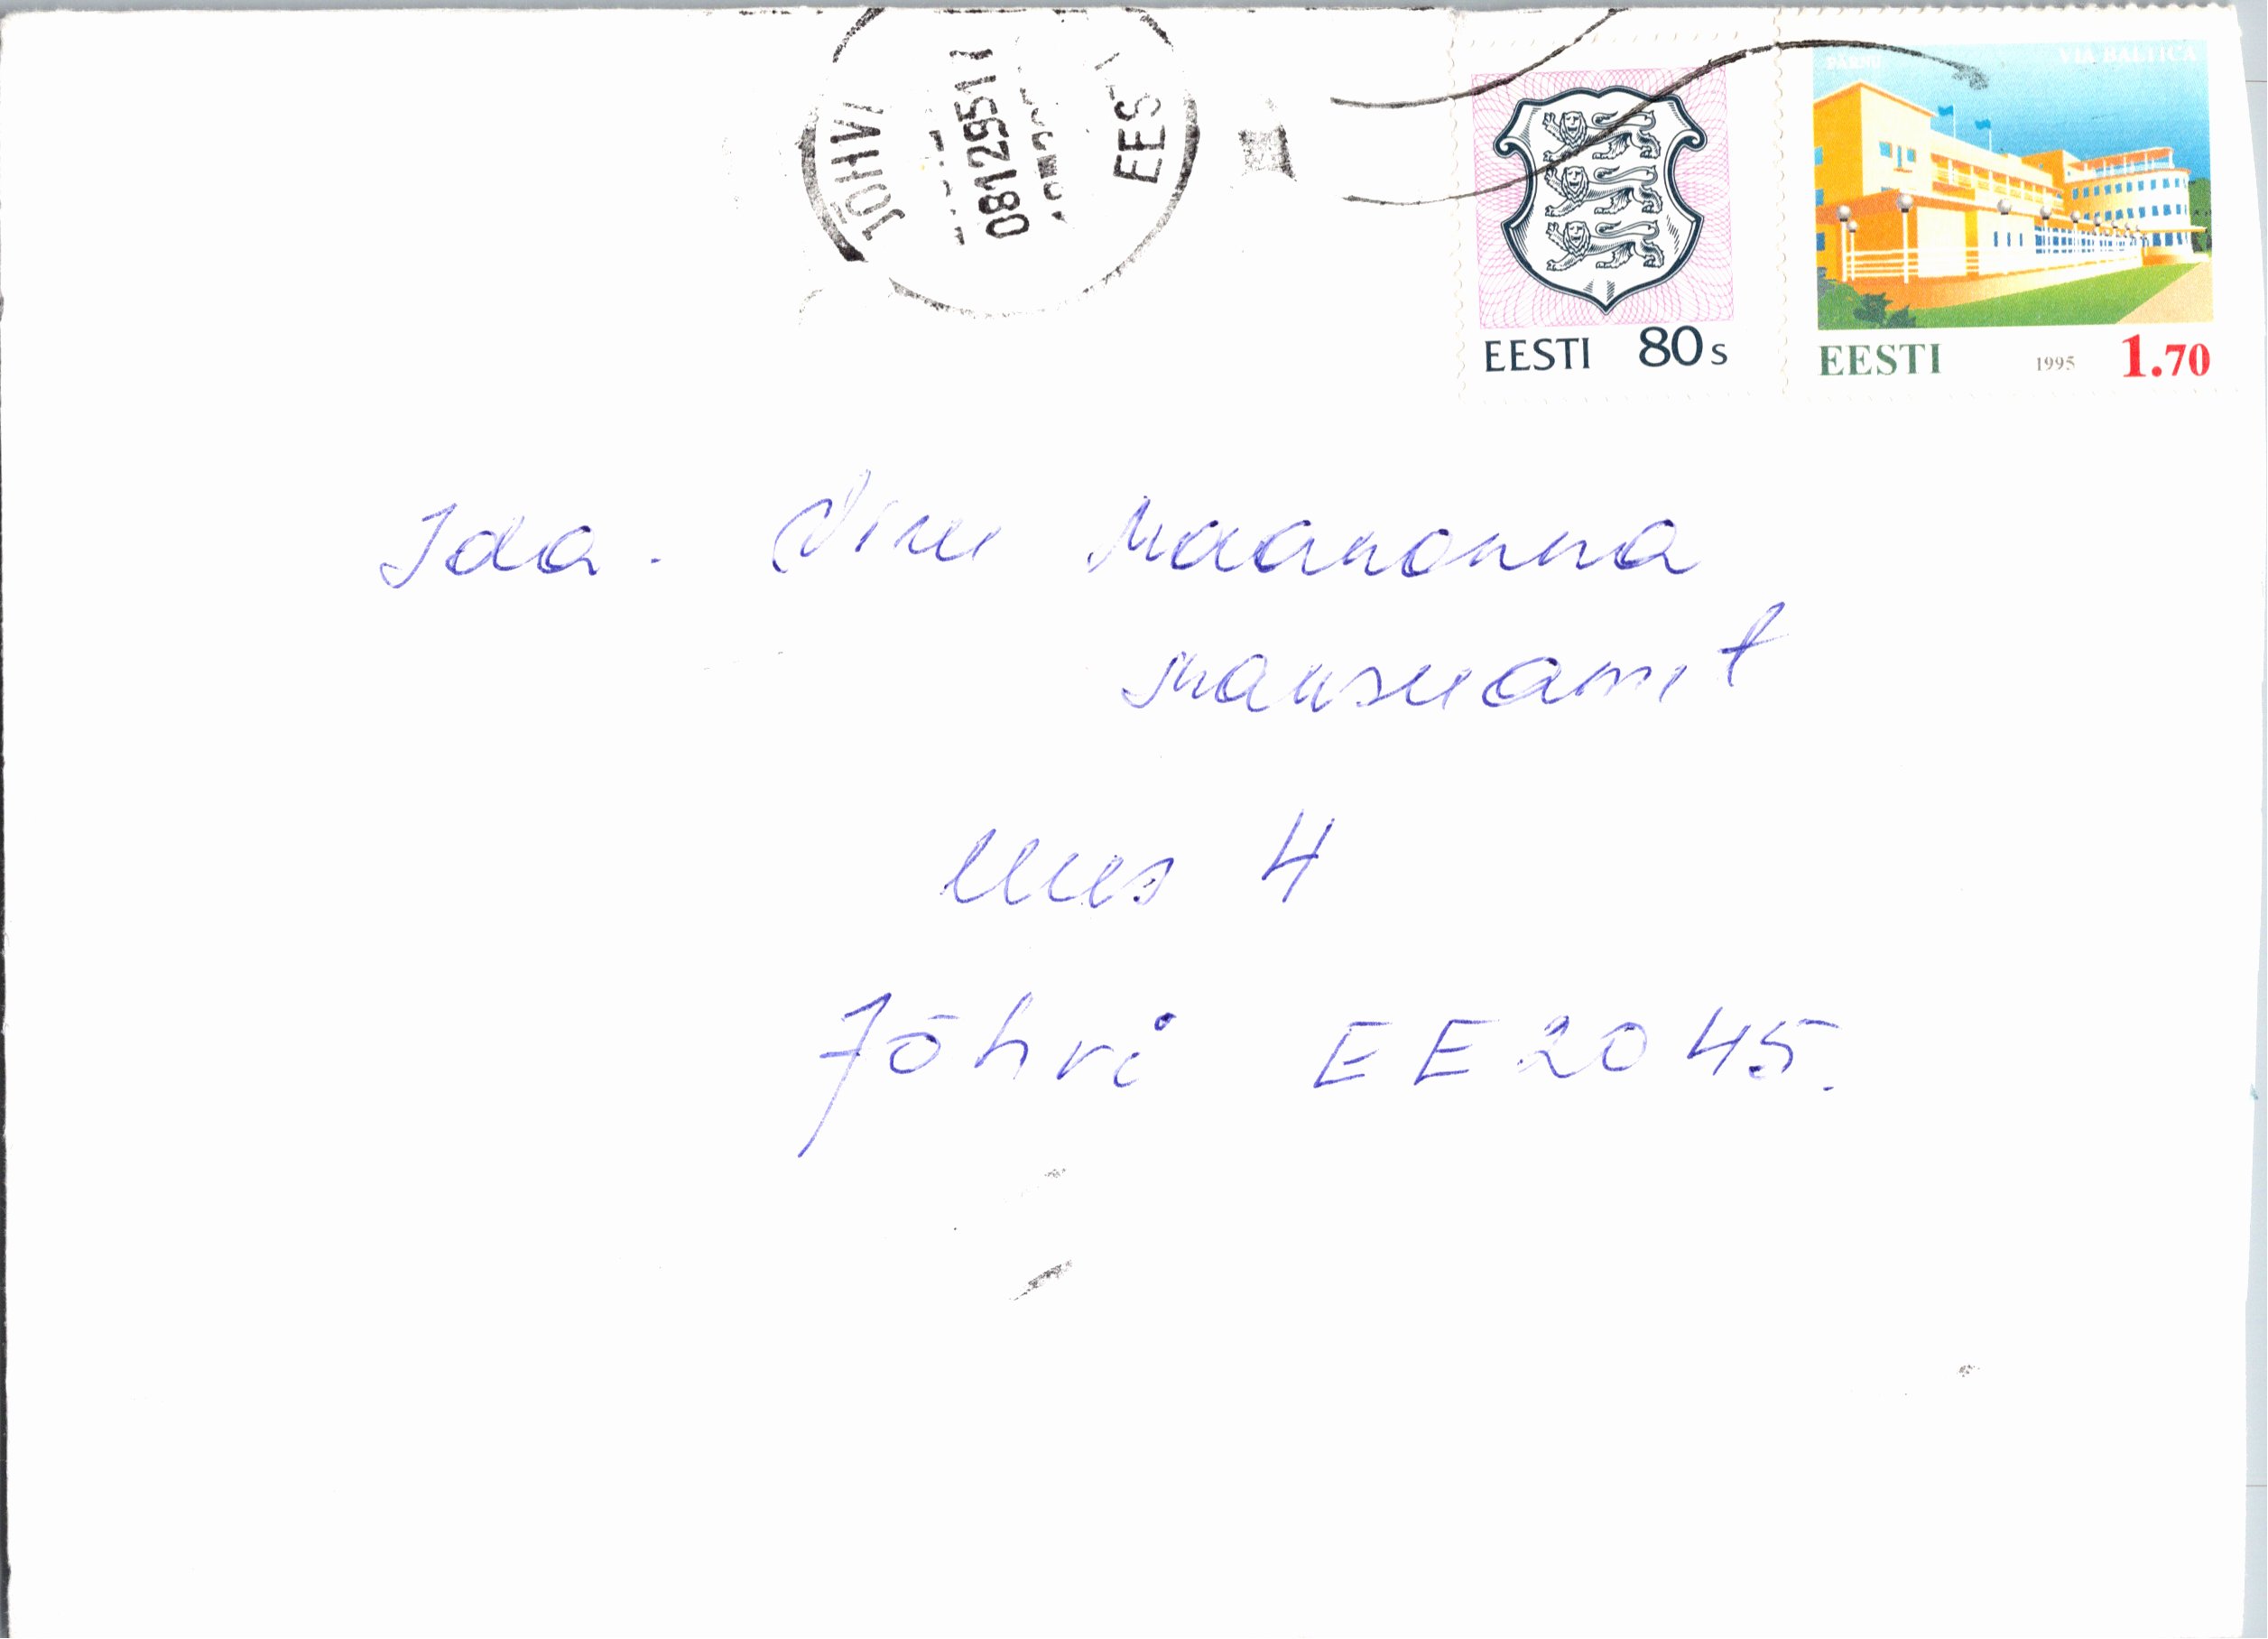 JÕHVI
08129511
EESTI
EESTI 80s
PÄRNU
VIA BALTICA
EESTI 1995 1.70
Ida. Viru Maakonna
Maksuamet
Uus 4
Jõhvi EE2045.